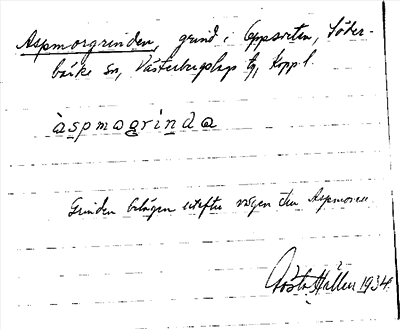 Aspmorgrinden, grind i Oppsveten, Söder-
bärke sn, Västerbergslags tg, Koppl.
àspmogrinda
Grinden belägen utefter vägen över Aspmoren
Gösta Hallén 1934.